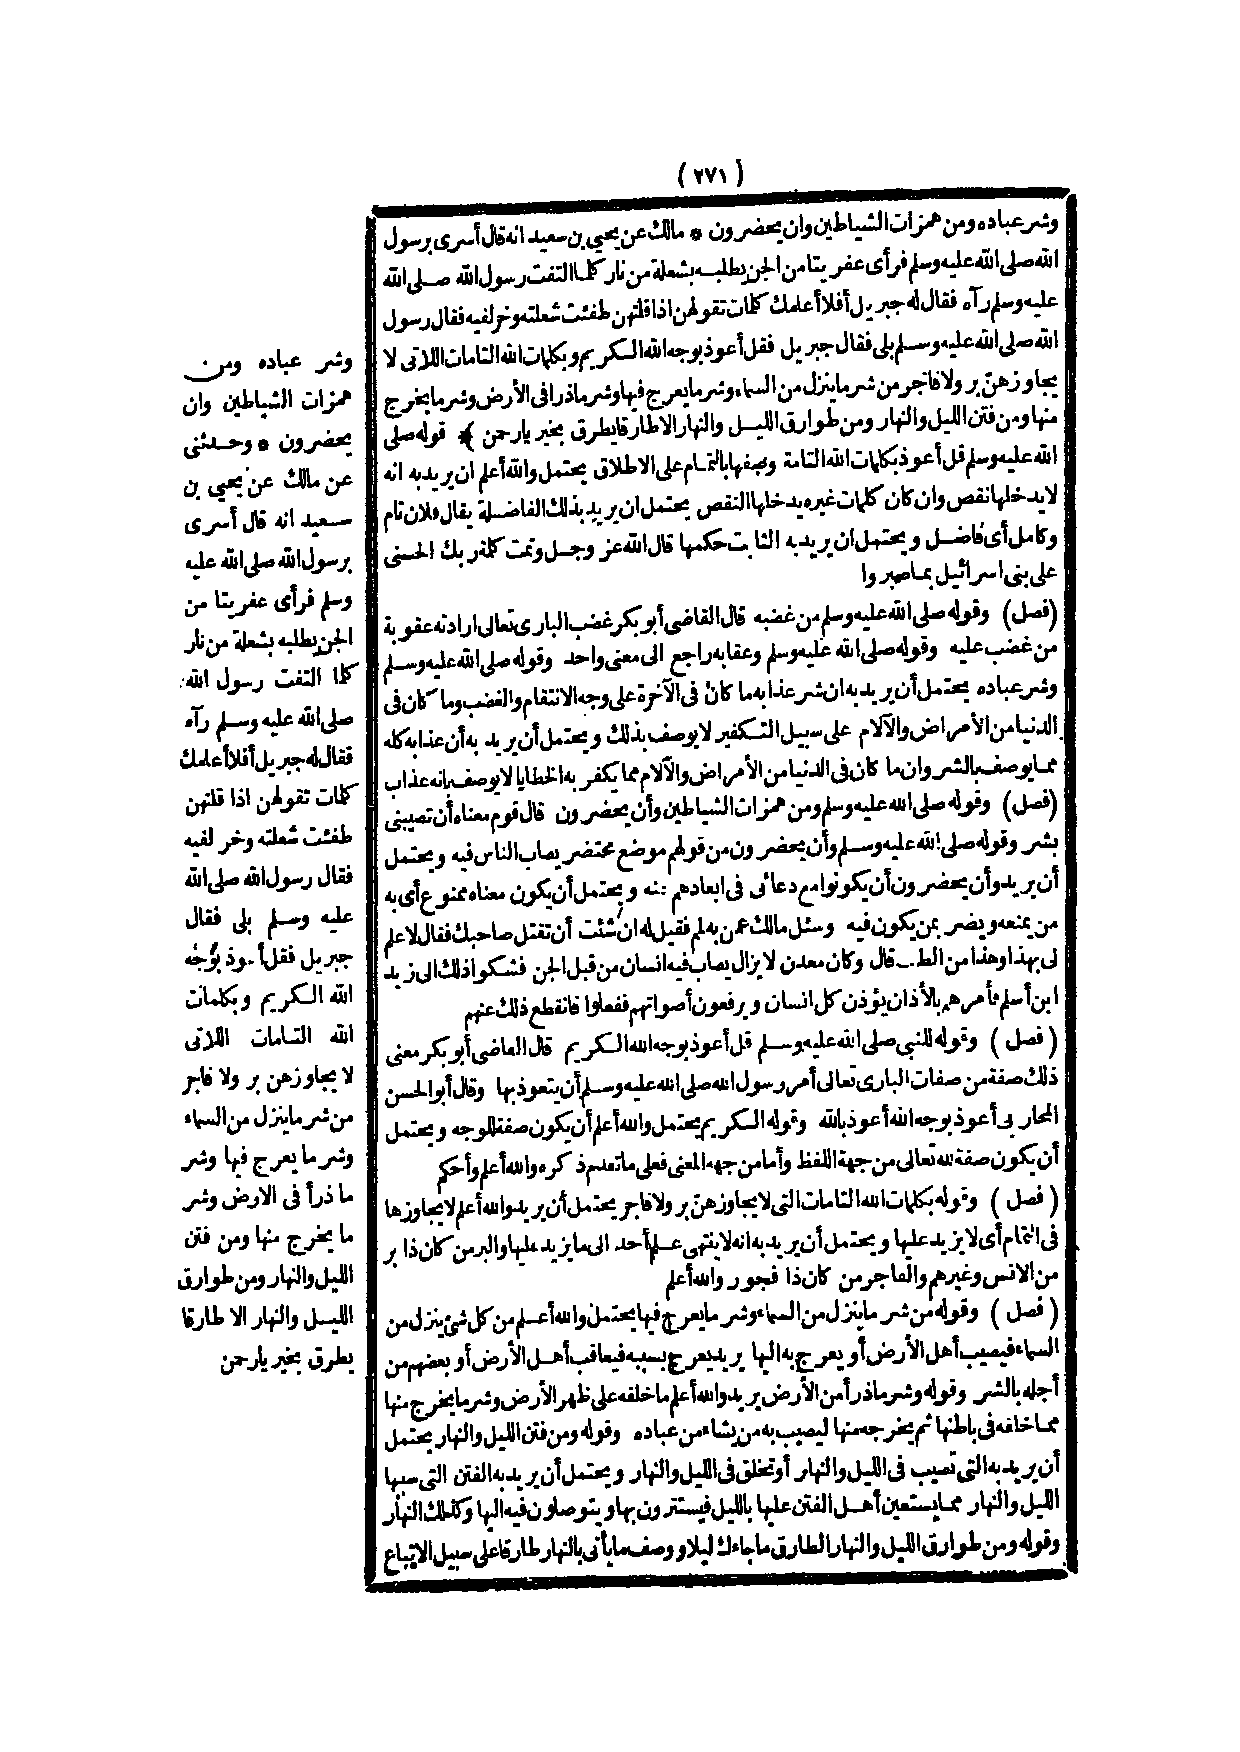 ( ٢٧١ )
وشر عباده ومن همزات الشياطين وان يحضرون * مالك عن يحيى بن سعيد انه قال أسرى برسول
الله صلى الله عليه وسلم فرأى عفريتا من الجن يطلبه بشعلة من نار كلما التفت رسول الله صلى الله
عليه وسلم رآه فقال له جبريل أفلا أعلمك كلمات تقولهن اذا قلتهن طفئت شعلته وخر لفيه فقال رسول
الله صلى الله عليه وسلم بلى فقال جبريل فقل أعوذ بوجه الله الكريم وبكلمات الله التامات اللاتى لا
يجاوزهنّ بر ولا فاجر من شر ما ينزل من السماء وشر ما يعرج فيها وشر ما ذرا فى الأرض وشر ما يخرج
منها ومن فتن الليل والنهار ومن طوارق الليل والنهار الا طارقا يطرق بخير يارحمن ﴾ قوله صلى
الله عليه وسلم قل أعوذ بكلمات الله التامة وصفها بالتمام على الاطلاق يحتمل والله أعلم ان يريد به انه
لا يدخلها نقص وان كان كلمات غيره يدخلها النقص يحتمل ان يريد بذلك الفاضلة يقال فلان تام
وكامل أى فاضل ويحتمل ان يريد به الثابت حكمها قال الله عز وجل وتمت كلمة ربك الحسنى
على بنى اسرائيل بما صبروا
(فصل) وقوله صلى الله عليه وسلم من غضبه قال القاضى أبو بكر غضب البارى تعالى ارادته عقوبة
من غضب عليه وقوله صلى الله عليه وسلم وعقابه راجع الى معنى واحد وقوله صلى الله عليه وسلم
وشر عباده يحتمل أن يريد به ان شر عذابه ما كان فى الآخرة على وجه الانتقام والغضب وما كان فى
الدنيا من الأمراض والآلام على سبيل التكفير لا يوصف بذلك ويحتمل أن يريد به أن عذابه كله
مما يوصف بالشر وان ما كان فى الدنيا من الأمراض والآلام مما يكفر به الخطايا لا يوصف بانه عذاب
(فصل) وقوله صلى الله عليه وسلم ومن همزات الشياطين وأن يحضرون قال قوم معناه أن تصيبنى
بشر وقوله صلى الله عليه وسلم وأن يحضرون من قولهم موضع محتضر يصاب الناس فيه ويحتمل
أن يريد وأن يحضرون أن يكونوا مع دعائى فى ابعادهم عنه ويحتمل أن يكون معناه ممنوع أى به
من يمنعه ويضر بمن يكون فيه وسئل مالك عمن به لم فقيل له ان شئت أن تقتل صاحبك فقال لا علم
لى بهذا وهذا من الطب قال وكان معدن لا يزال يصاب فيه انسان من قبل الجن فشكوا ذلك الى زيد
ابن أسلم فأمرهم بالأذان يؤذن كل انسان ويرفعون أصواتهم ففعلوا فانقطع ذلك عنهم
( فصل ) وقوله للنبى صلى الله عليه وسلم قل أعوذ بوجه الله الكريم قال القاضى أبو بكر معنى
ذلك صفة من صفات البارى تعالى أمر رسول الله صلى الله عليه وسلم أن يتعوذ بها وقال أبو الحسن
المحاربى أعوذ بوجه الله أعوذ بالله وقوله الكريم يحتمل والله أعلم أن يكون صفة للوجه ويحتمل
أن يكون صفة لله تعالى من جهة اللفظ وأما من جهة المعنى فعلى ما تقدم ذكره والله أعلم وأحكم
( فصل ) وقوله بكلمات الله التامات التى لا يجاوزهنّ بر ولا فاجر يحتمل أن يريد والله أعلم لا يجاوزها
فى التمام أى لا يزيد عليها ويحتمل أن يريد به انه لا ينتهى علم أحد الى ما يزيد عليها والبر من كان ذا بر
من الانس وغيرهم والفاجر من كان ذا فجور والله أعلم
( فصل ) وقوله من شر ما ينزل من السماء وشر ما يعرج فيها يحتمل والله أعلم من كل شئ ينزل من
السماء فيصيب أهل الأرض أو يعرج به اليها يريد يعرج بسببه فيعاقب أهل الأرض أو بعضهم من
أجله بالشر وقوله وشر ما ذرأ من الأرض يريد والله أعلم ما خلقه على ظهر الأرض وشر ما يخرج منها
مما خلقه فى باطنها ثم يخرجه منها ليصيب به من يشاء من عباده وقوله ومن فتن الليل والنهار يحتمل
أن يريد به التى تصيب فى الليل والنهار أو تخلق فى الليل والنهار ويحتمل أن يريد به الفتن التى سببها
الليل والنهار مما يستعين أهل الفتن عليها بالليل فيستترون بها ويتوصلون فيه اليها وكذلك النهار
وقوله ومن طوارق الليل والنهار الطارق ما جاءك ليلا ووصف ما يأتى بالنهار طارقا على سبيل الاتباع
وشر عباده ومن
همزات الشياطين وان
يحضرون * وحدثنى
عن مالك عن يحيى بن
سعيد انه قال أسرى
برسول الله صلى الله عليه
وسلم فرأى عفريتا من
الجن يطلبه بشعلة من نار
كلما التفت رسول الله
صلى الله عليه وسلم رآه
فقال له جبريل أفلا أعلمك
كلمات تقولهن اذا قلتهن
طفئت شعلته وخر لفيه
فقال رسول الله صلى الله
عليه وسلم بلى فقال
جبريل فقل أعوذ بوجه
الله الكريم وبكلمات
الله التامات اللاتى
لا يجاوزهن بر ولا فاجر
من شر ما ينزل من السماء
وشر ما يعرج فيها وشر
ما ذرأ فى الارض وشر
ما يخرج منها ومن فتن
الليل والنهار ومن طوارق
الليل والنهار الا طارقا
يطرق بخير يارحمن